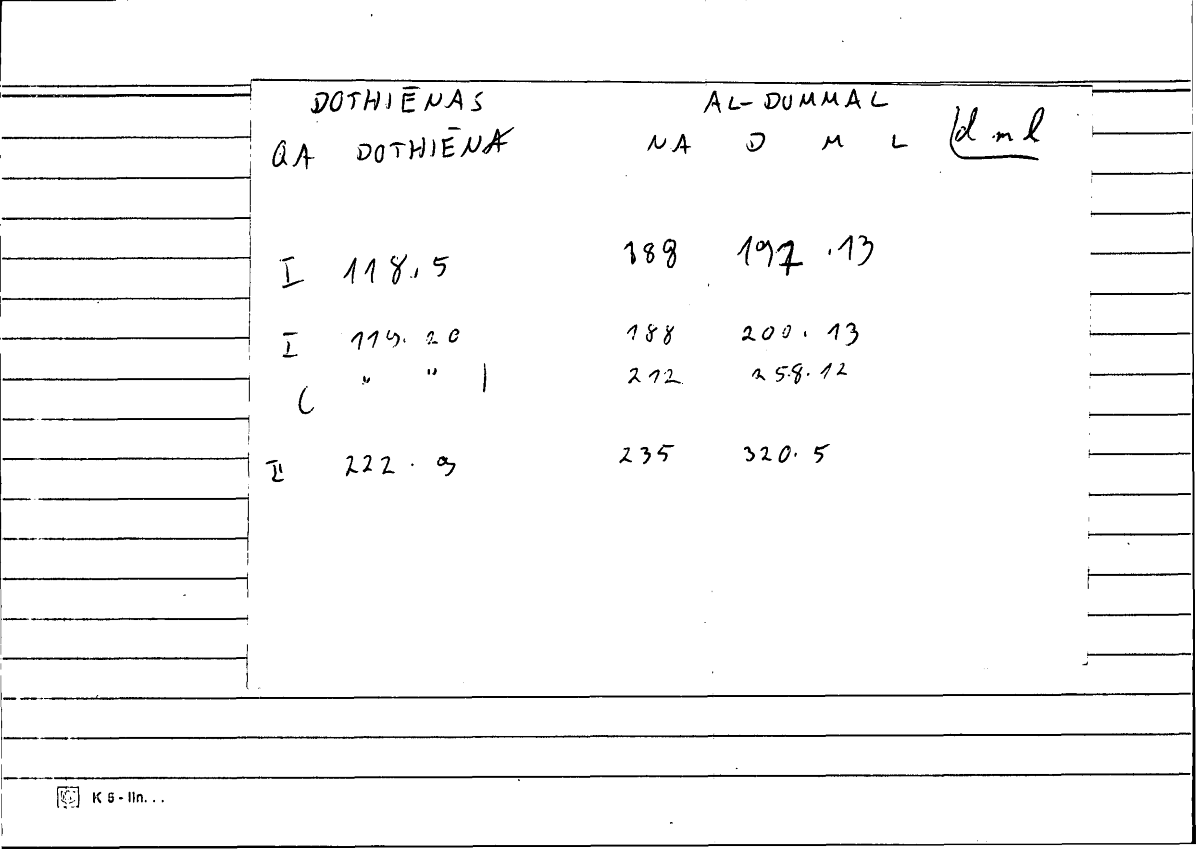 DOTHIĒNAS AL-DUMMAL
QA DOTHIĒNA NA D M L (d m l
I 118.5 189 197.13
I 119.20 188 200.13
( " " ) 212 258.12
II 222.9 235 320.5
K 6 - lin...